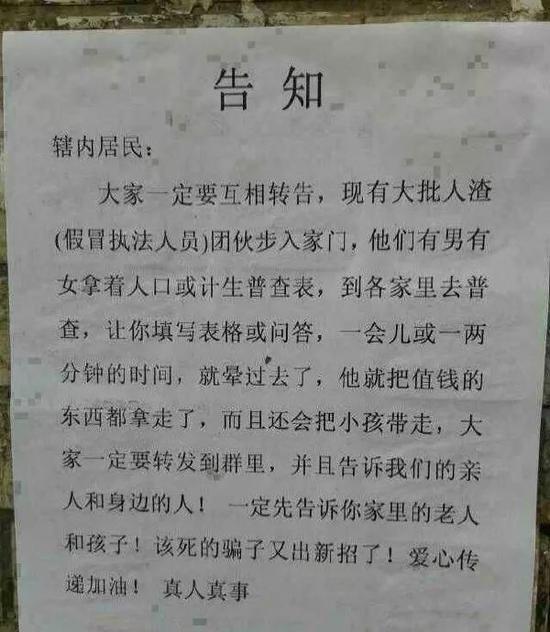 告知
辖内居民：
大家一定要互相转告，现有大批人渣
(假冒执法人员)团伙步入家门，他们有男有
女拿着人口或计生普查表，到各家里去普
查，让你填写表格或问答，一会儿或一两
分钟的时间，就晕过去了，他就把值钱的
东西都拿走了，而且还会把小孩带走，大
家一定要转发到群里，并且告诉我们的亲
人和身边的人！一定先告诉你家里的老人
和孩子！该死的骗子又出新招了！爱心传
递加油！ 真人真事